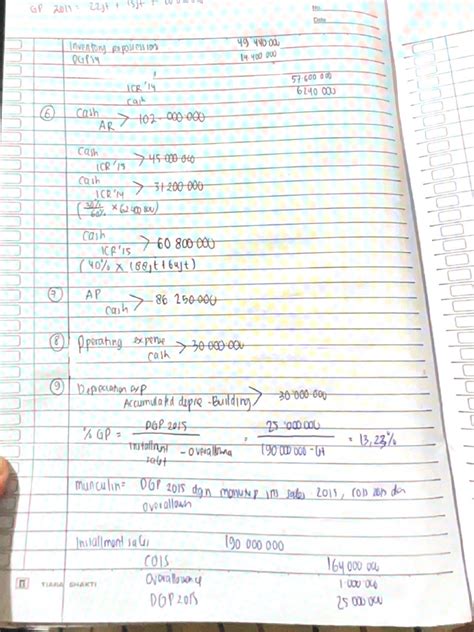 GP 2013 = 22jt + 15jt +
No.
Date
Inventory repossession 49 440 000
DGP'14 14 400 000
ICR '14 57 600 000
cash 6240 000
⑥ Cash
AR > 102 000 000
Cash
ICR '13 > 45 000 000
Cash
ICR '14 > 31 200 000
(30%/60% × 62 400 000)
Cash
ICR '15 > 60 800 000
(40% × (88jt + 64jt)
⑦ AP
cash > 86 250 000
⑧ Operating expense
cash > 30 000 000
⑨ Depreciation exp
Accumulated depre - Building > 30 000 000
% GP = DGP 2015 / installment sales - Overallowa = 25 000 000 / 190 000 000 - 1jt = 13,23%
munculin = DGP 2015 dan menutup ins sales 2015, dan
overallown
Installment sales 190 000 000
COIS 164 000 000
Overallowance 1 000 000
DGP 2015 25 000 000
TIARA SHAKTI